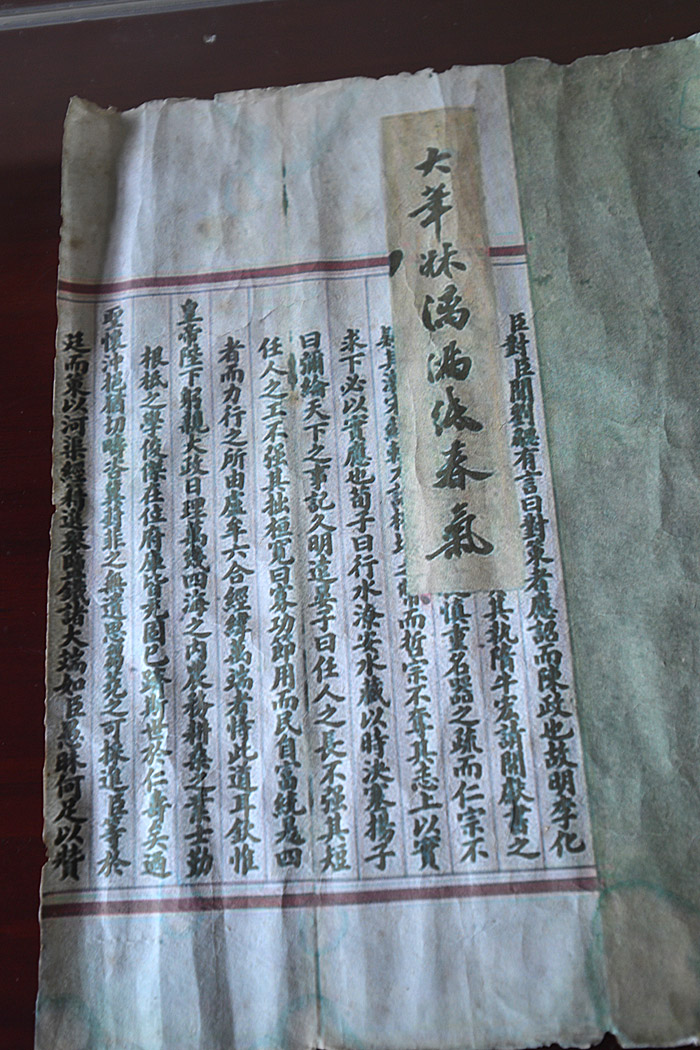 大筆淋漓滿紙春氣
臣對臣聞劉勰有言曰對策者應詔而陳政也故明李化
其執隋牛宏請開獻書之
慎重名器之疏而仁宗不
而哲宗不奪其志上以實
求下必以實應也荀子曰行水潦安水藏以時決塞揚子
曰彌綸天下之事記久明遠晏子曰任人之長不强其短
任人之工不强其拙桓寬曰寡功節用而民自富統是四
者而力行之所由廬牟六合經緯萬端者恃此道耳欽惟
皇帝陛下躬親大政日理萬幾四海之內農務耕桑之業士勤
根柢之學俊傑在位府庫皆充固已躋斯世於仁壽矣迺
聖懷沖挹猶切疇咨葑菲之無遺思芻蕘之可採進臣等於
廷而策以河渠經籍選舉鹽鐵諸大端如臣愚昧何足以贊